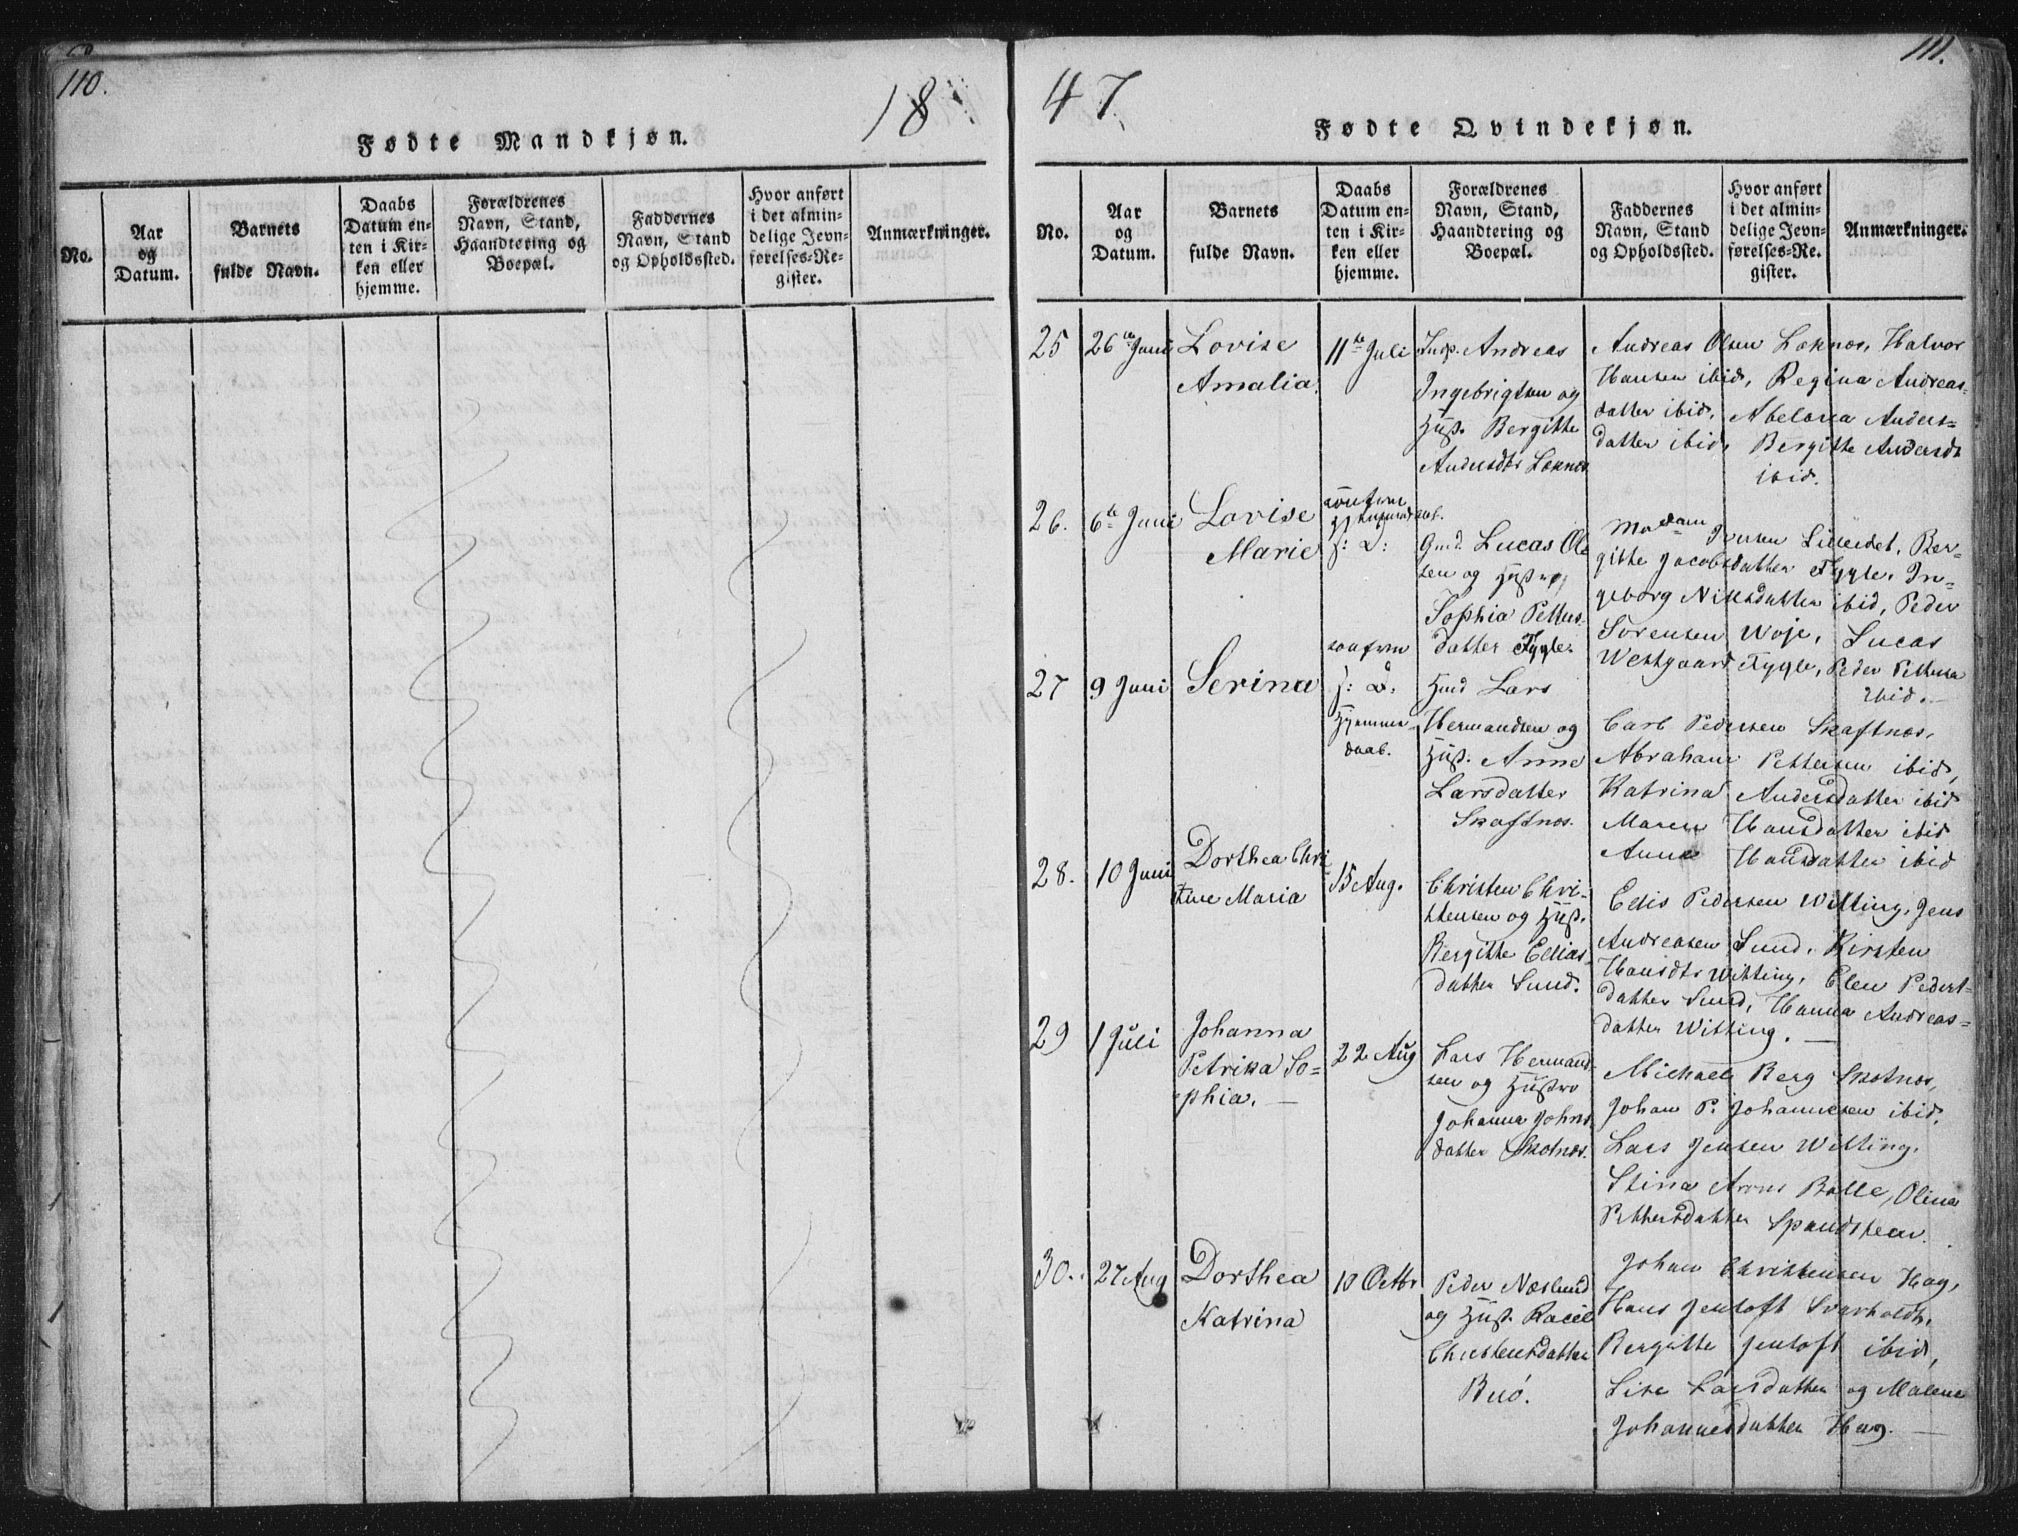 110.
18
Fødte Mandkjøn.
No.
Aar
og
Datum.
Barnets
fulde Navn.
Daabs
Datum en-
ten i Kir-
ken eller
hjemme.
Forældrenes
Navn, Stand,
Haandtering og
Boepæl.
Faddernes
Navn, Stand
og Opholdssted.
Hvor anført
i det almin-
delige Jevn-
førelses-Re-
gister.
Anmærkninger.
111.
47
Fødte Qvindekjøn.
No.
Aar
og
Datum.
Barnets
fulde Navn.
Daabs
Datum en-
ten i Kir-
ken eller
hjemme.
Forældrenes
Navn, Stand,
Haandtering og
Boepæl.
Faddernes
Navn, Stand
og Opholdssted.
Hvor anført
i det almin-
delige Jevn-
førelses-Re-
gister.
Anmærkninger.
25
26de Juni
Lovise
Amalia.
11te Juli
Insp. Andreas
Ingebrigtsen og
Hust. Bergitte
Andersdtr Løknæs
Andreas Olsen Løknæs, Halvor
Hansen ibid, Regina Andreas-
datter ibid, Abelona Anders-
datter ibid, Bergitte Andersdt
ibid.
26.
6te Juni
Lovise
Marie
f: D:
Gmd. Lucas Ol-
sen og Hustro
Sophia Pettus-
datter Tygle.
Madam Iversen Lilleidet, Ber-
gitte Jacobsdatter Tygle, In-
geborg Nilsdatter ibid, Peder
Sørensen Woje, Lucas
Westgaard Tygle, Peder Pettersen
ibid.
27
9 Juni
Serina
f: D:
Hjemme-
daab.
Hmd Lars
Hermandsen og
Hust. Anne
Larsdatter
Skaftnæs.
Carl Pedersen Skaftnæs,
Abraham Pettersen ibid,
Katrina Andersdatter ibid
Maren Hansdatter ibid
Anne Hansdatter ibid
28.
10 Juni
Dorthea Chri
stine Maria
15 Aug.
Christen Chri-
stensen og Hust.
Bergitte Elias-
datter Sund.
Elis Pedersen Witting, Jens
Andreasen Sund, Kirsten
Hansdtr Witting, Elen Peders-
datter Sund, Hanna Andreas-
datter Witting. —
29
1 Juli
Johanna
Petrika So-
phia. —
22 Aug
Lars Hermand-
sen og Hustro
Johanna Johns-
datter Skotnæs.
Michael Berg Skotnæs,
Johan P. Johannesen ibid.
Lars Jensen Witting.
Stina Arons Balle, Olina
Pettersdatter Spandsteen.
30.
27 Aug
Dorthea
Katrina
10 Octbr
Peder Næslund
og Hust. Racel
Christensdatter
Buø.
Johan Christensen Hag,
Hans Jentoft Svarholdt,
Bergitte Jentoft ibid,
Lise Larsdatter og Malene
Johannesdatter Hag. —